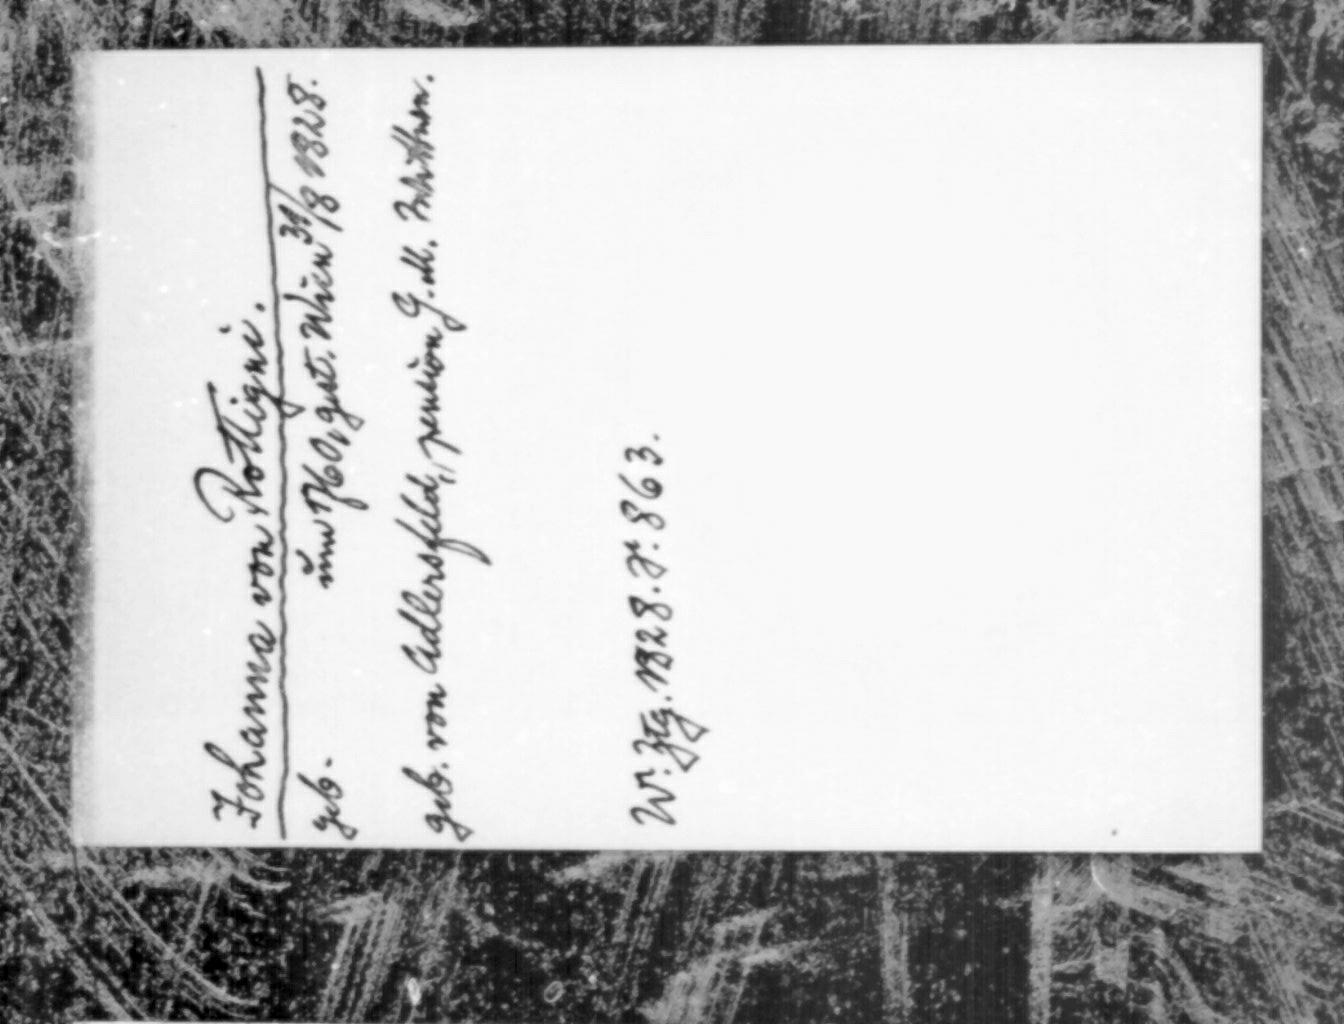 Johanna von Rottigni.
geb. um 1760, gest. Wien 31/8 1828.
geb. von Adlersfeld, pension G. M. Witwen.
W. Ztg. 1828. S. 863.